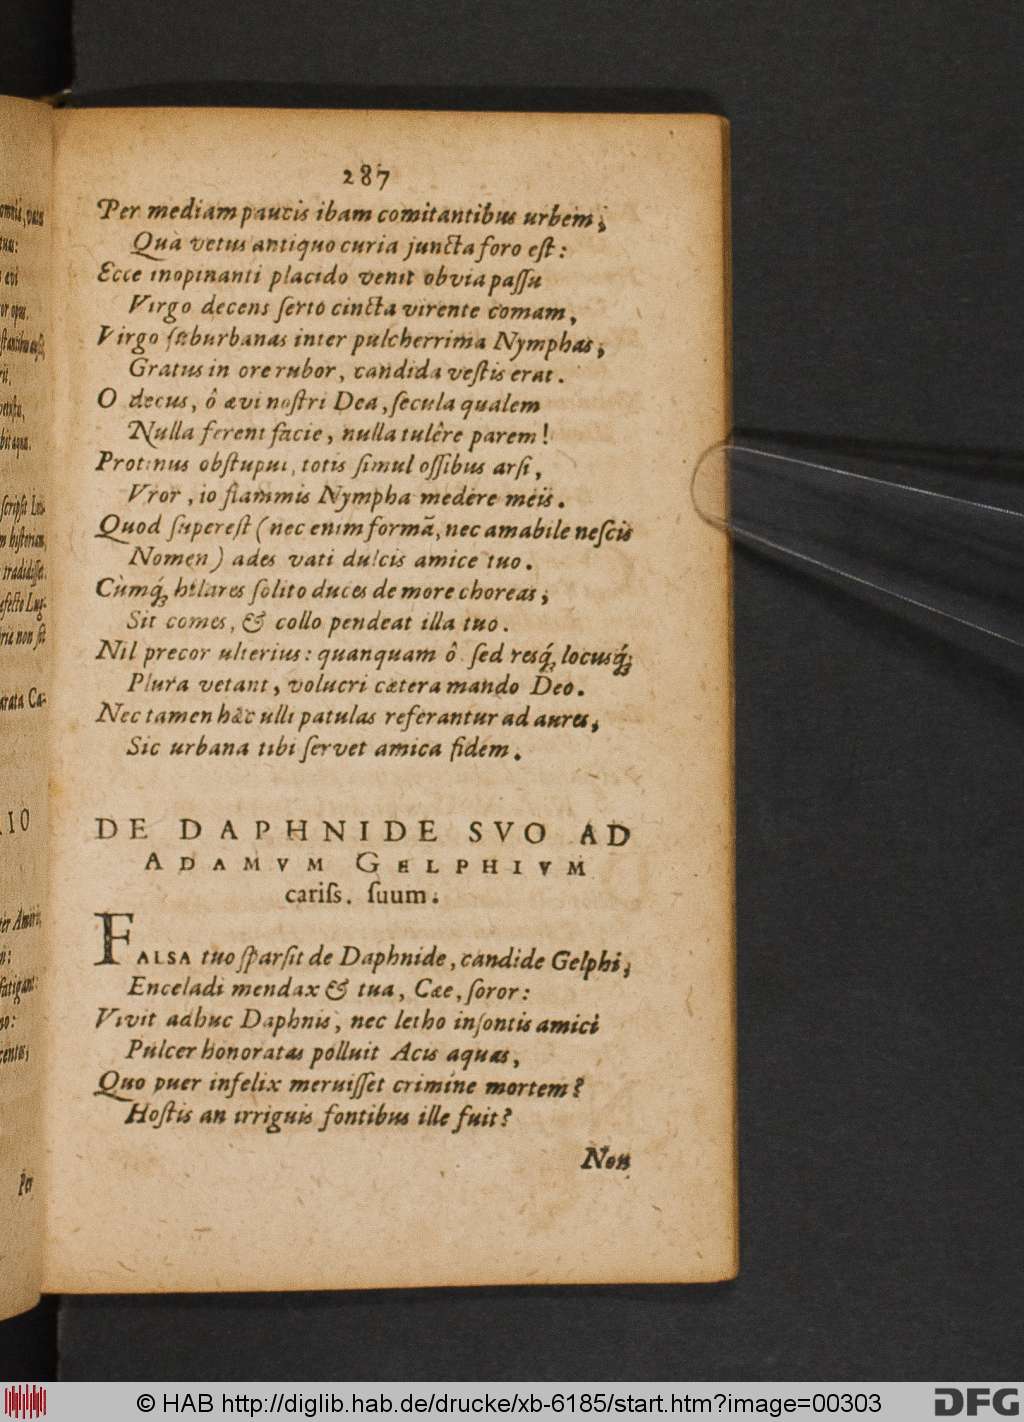 287
Per mediam paucis ibam comitantibus urbem;
Quà vetus antiquo curia juncta foro est:
Ecce inopinanti placido venit obvia passu
Virgo decens serto cincta virente comam,
Virgo suburbanas inter pulcherrima Nymphas;
Gratus in ore rubor, candida vestis erat.
O decus, ô ævi nostri Dea, secula qualem
Nulla ferent facie, nulla tulêre parem!
Protinus obstupui, totis simul ossibus arsi,
Vror, io flammis Nympha medêre meis.
Quod superest (nec enim formã, nec amabile nescis
Nomen) ades vati dulcis amice tuo.
Cùmq́; hilares solito duces de more choreas;
Sit comes, & collo pendeat illa tuo.
Nil precor ulterius: quanquam ô. sed resq́; locusq́;
Plura vetant, volucri cætera mando Deo.
Nec tamen hæc ulli patulas referantur ad aures,
Sic urbana tibi servet amica fidem.
DE DAPHNIDE SVO AD
ADAMVM GELPHIVM
cariss. suum.
FALSA tuo sparsit de Daphnide, candide Gelphi;
Enceladi mendax & tua, Cæe, soror:
Vivit adhuc Daphnis, nec letho insontis amici
Pulcer honoratas polluit Acis aquas,
Quo puer infelix meruisset crimine mortem?
Hostis an irriguis fontibus ille fuit?
Non
Per
© HAB http://diglib.hab.de/drucke/xb-6185/start.htm?image=00303
DFG